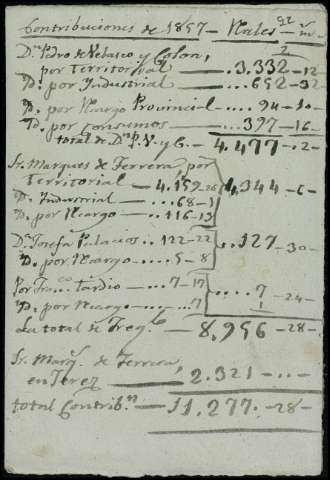 Contribuciones de 1857 — Reales — m.
Dn. Pedro de Velasco y Colon,
por Territorial — 3.332 — 12
Yd. por Industrial — ... 652 — 32
Yd. por Recargo Provincial — 94 — 10
Yd. por consumos — ... 397 — 16 —
total de Dn. P. V. y C. — 4.477 — .. 2 —
Sr. Marques de Ferrera, por
Territorial — 4.159 — 26 4,344 — 6 —
Yd. Industrial — 68 — 1
Yd. por Recargo — 116 — 13
Da. Josefa Palacios .. 122 — 22 ... 127 — 30 —
Yd. por Recargo .... 5 — 8
Por Franco. tardio ... 7 — 17 .... 7 — 24 —
Yd. por Recargo ... — " — 7
total de Freg. — 8,956 — 28 —
Sr. Marq. de Ferrera,
en Jerez — 2.321 — ... —
total Contribn. — 11.277 — 28 —